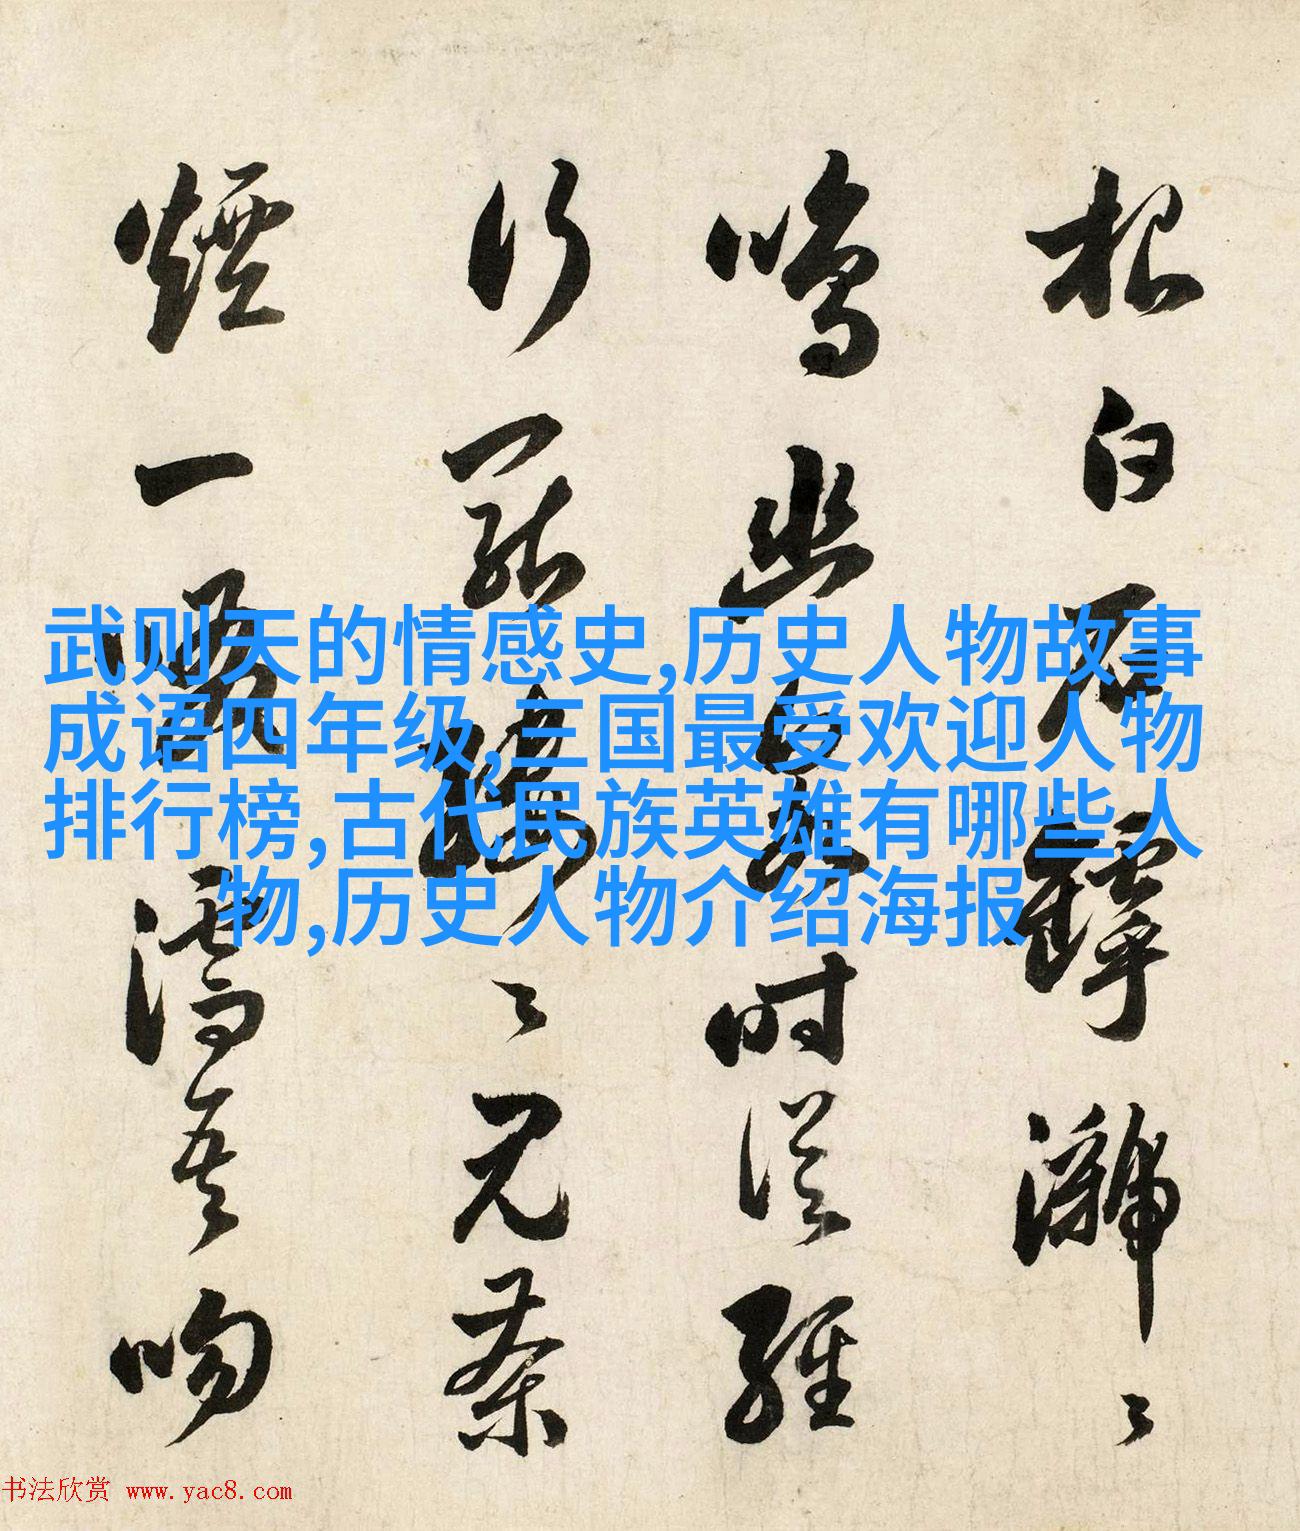 根白石鐸瀰〻
鳴幽
时從維
行罷
〻元茶
煙一
濡吾吻
武则天的情感史,历史人物故事
成语四年级,三国最受欢迎人物
排行榜,古代民族英雄有哪些人
物,历史人物介绍海报
书法欣赏 www.yac8.com